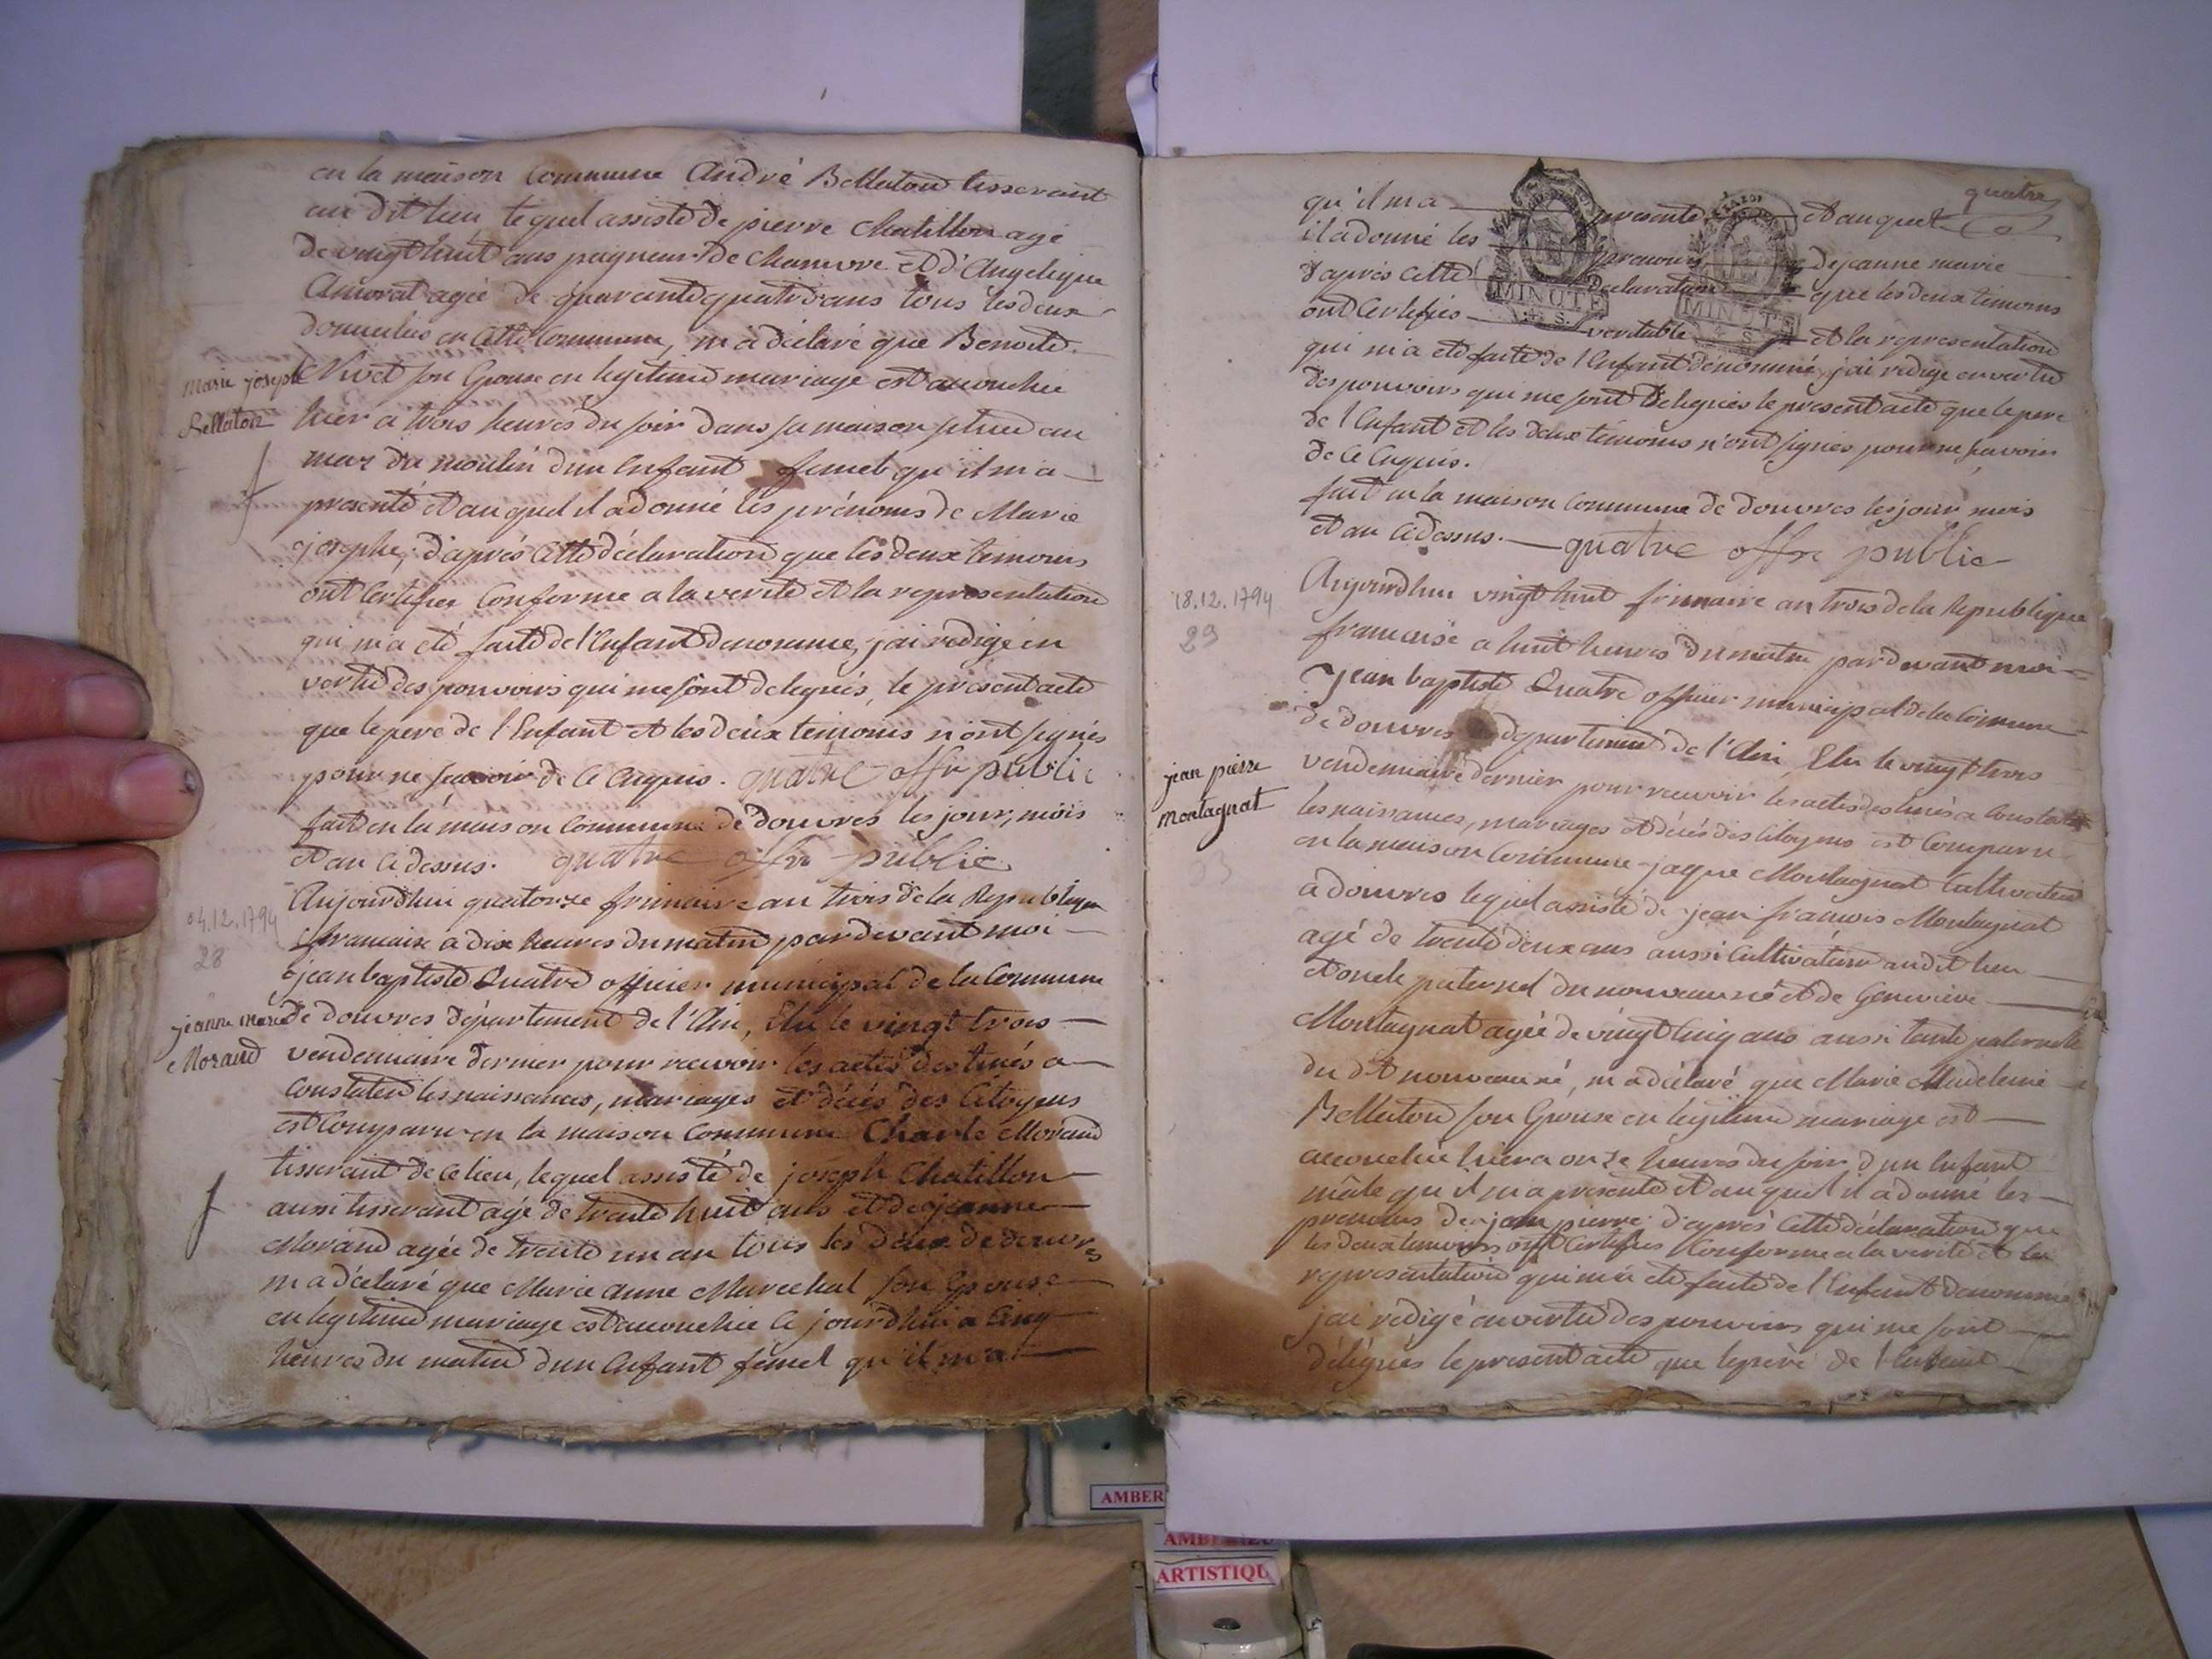 en la maison commune André Bellaton tisserant
au dit lieu lequel assisté de pierre Chatillon agé
de vingt huit ans peigneur de chanvre et d'Angelique
Amorat agée de quarante quatre ans tous les deux
domiciliés en cette commune, m'a déclaré que Benoite
Vivet son Epouse en legitime mariage est accouchée
hier a trois heures du soir dans sa maison située au
mas du moulin d'un Enfant femel qu'il m'a
presenté et au quel il a donné les prénoms de Marie
josephe, d'après cette déclaration que les deux temoins
ont certifier conforme a la verité et la representation
qui m'a eté faite de l'Enfant denommé, j'ai redigé en
vertu des pouvoirs qui me sont delegués, le present acte
que le pere de l'Enfant et les deux temoins n'ont signés
pour ne scavoir de ce enquis. quatre offr public
fait en la maison commune de douvres les jour, mois
et an ci dessus. quatre offr public
marie joseph
Bellaton
04.12.1794
28
jeanne marie
Morand
Aujourdhui quatorze frimaire an trois de la Republique
francaise a dix heures du matin pardevant moi
jean baptiste Quatre officier municipal de la Commune
de douvres département de l'Ain, Elu le vingt trois
vendemiaire dernier pour recevoir les actes destinés a
constater les naissances, mariages et décés des Citoyens
est comparu en la maison commune Charle Morand
tisserant de ce lieu, lequel assisté de joseph Chatillon
aussi tisserant agé de trente huit ans et de jeanne
Morand agée de trente un an tous les deux de douvres
m'a déclaré que Marie anne Marechal son Epouse
en legitime mariage est accouchée ce jourdhui a cinq
heures du matin d'un Enfant femel qu'il m'a
quatre
qu'il m'a presenté et auquel
il a donné les prenoms de jeanne marie
d'après cette declaration que les deux temoins
ont certifiés veritable et la representation
MINUTE
MINUTE
qui m'a eté faite de l'Enfant dénommé j'ai redigé en vertu
des pouvoirs qui me sont delegués le present acte que le pere
de l'Enfant et les deux témoins n'ont signés pour ne savoir
de ce Enquis.
fait en la maison commune de douvres les jour mois
et an ci dessus. quatre offr public
18.12.1794
29
jean pierre
montagnat
Aujourdhui vingt huit frimaire an trois de la Republique
francaise a huit heures du matin pardevant moi
jean baptiste Quatre officier municipal de la Commune
de douvres departement de l'Ain Elu le vingt trois
vendemiaire dernier pour recevoir les actes destinés a constater
les naissances, mariages et décés des Citoyens est comparu
en la maison commune jaque Montagnat Cultivateur
a douvres lequel assisté de jean francois Montagnat
agé de trente deux ans aussi Cultivateur audit lieu
et oncle paternel du nouveau né et de Genevieve
Montagnat agée de vingt cinq ans aussi tante paternelle
du dit nouveau né, m'a déclaré que Marie Madeleine
Bellaton son Epouse en legitime mariage est
accouchée hier a onze heures du soir d'un Enfant
mâle qu'il m'a presenté et auquel il a donné les
prenoms de jean pierre, d'aprés cette déclaration que
les deux temoins ont certifiés conforme a la verité et la
representation qui m'a eté faite de l'Enfant denommé
j'ai redigé en vertu des pouvoirs qui me sont
délégués le present acte que le père de l'Enfant
AMBER
ARTISTIQU